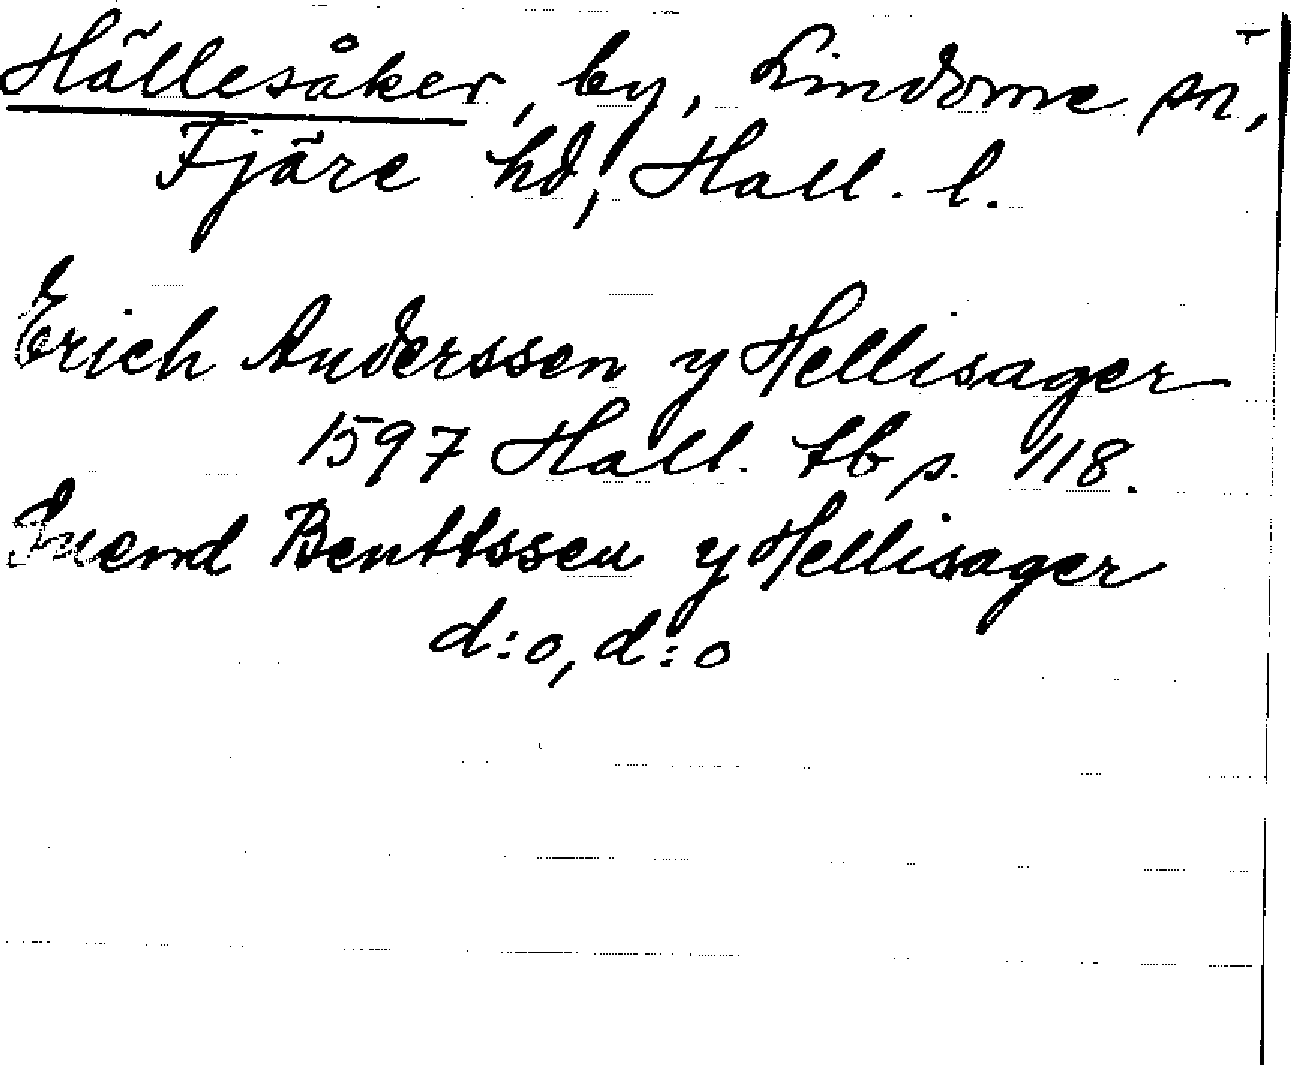 Hällesåker, by, Lindome sn,
Fjäre hd, Hall. l.
Erich Anderssen y Hellisager
1597 Hall. tb s. 118.
Suend Benttssen y Hellisager
d:o, d:o